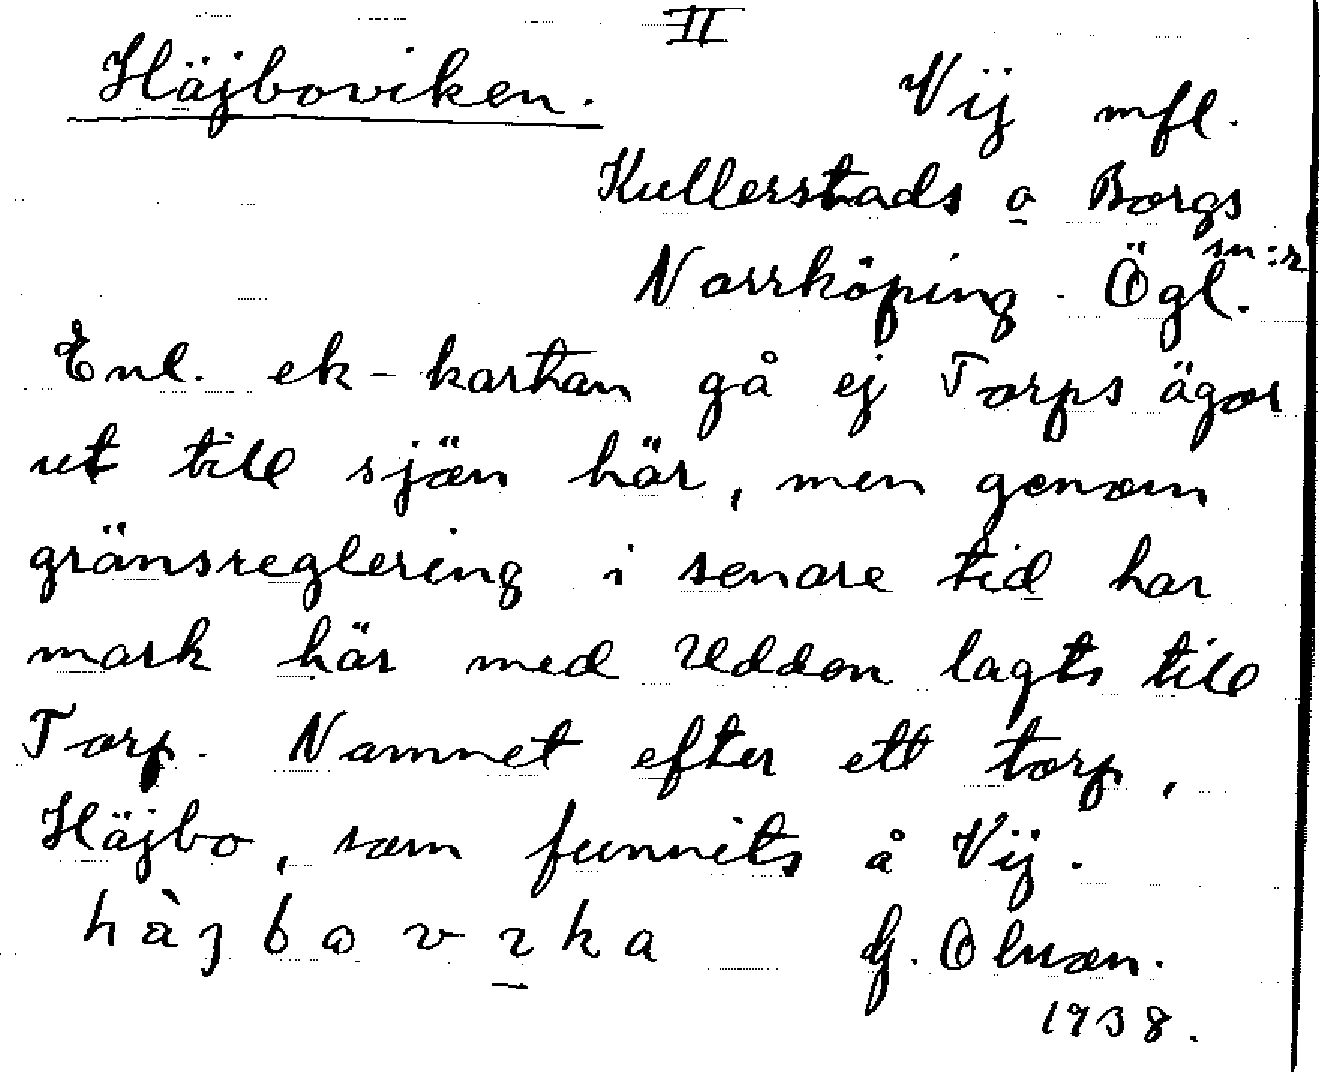 II
Häjboviken. Vij mfl.
Kullerstads o Borgs
sn:r
Norrköping. Ögl.
Enl. ek-kartan gå ej Torps ägor
ut till sjön här, men genom
gränsreglering i senare tid har
mark här med Uddon lagts till
Torp. Namnet efter ett torp,
Häjbo, som funnits å Vij.
hàjbovɩka G. Olson.
1938.